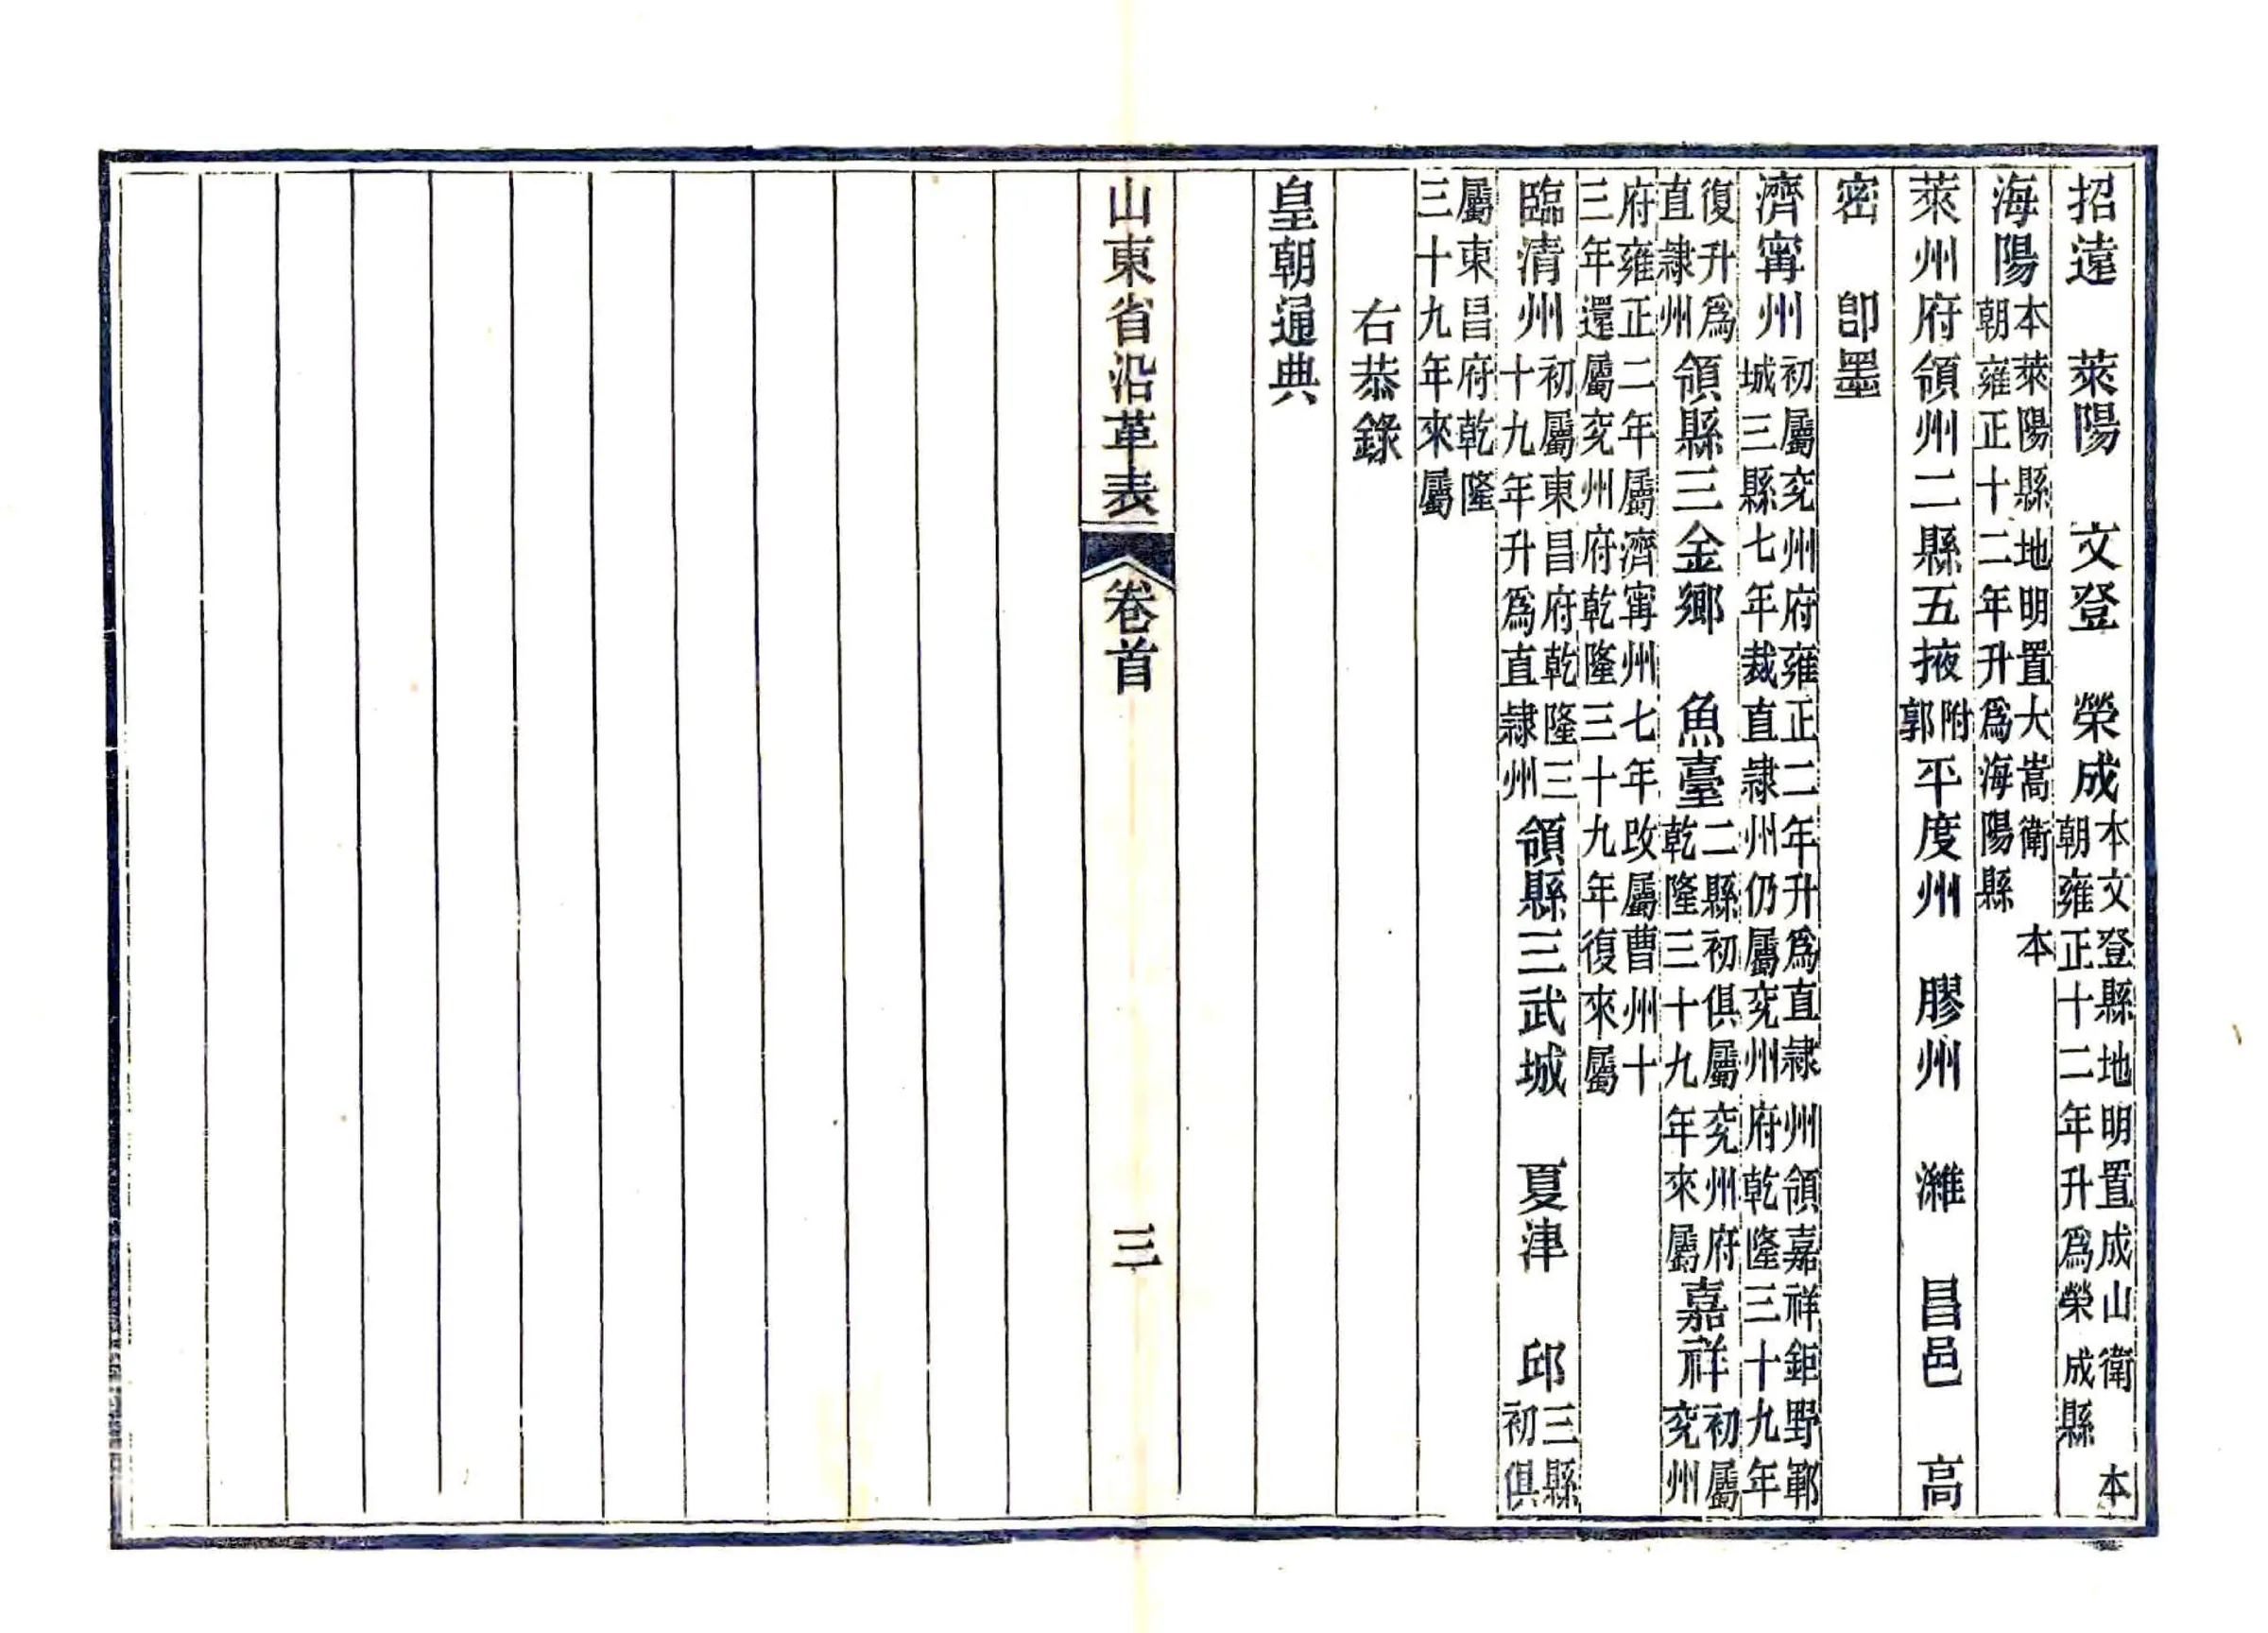 招遠　萊陽　文登　榮成本文登縣地明置成山衛　本朝雍正十二年升爲榮成縣
海陽本萊陽縣地明置大嵩衛　本朝雍正十二年升爲海陽縣
萊州府領州二縣五掖附郭平度州　膠州　濰　昌邑　高
密　卽墨
濟甯州初屬兖州府雍正二年升爲直隸州領嘉祥鉅野鄆城三縣七年裁直隸州仍屬兖州府乾隆三十九年
復升爲直隸州領縣三金鄉　魚臺二縣初俱屬兖州府乾隆三十九年來屬嘉祥初屬兖州
府雍正二年屬濟甯州七年改屬曹州十三年還屬兖州府乾隆三十九年復來屬
臨清州初屬東昌府乾隆三十九年升爲直隸州領縣三武城　夏津　邱三縣初俱
屬東昌府乾隆三十九年來屬
右恭錄
皇朝通典
山東省沿革表　卷首　三